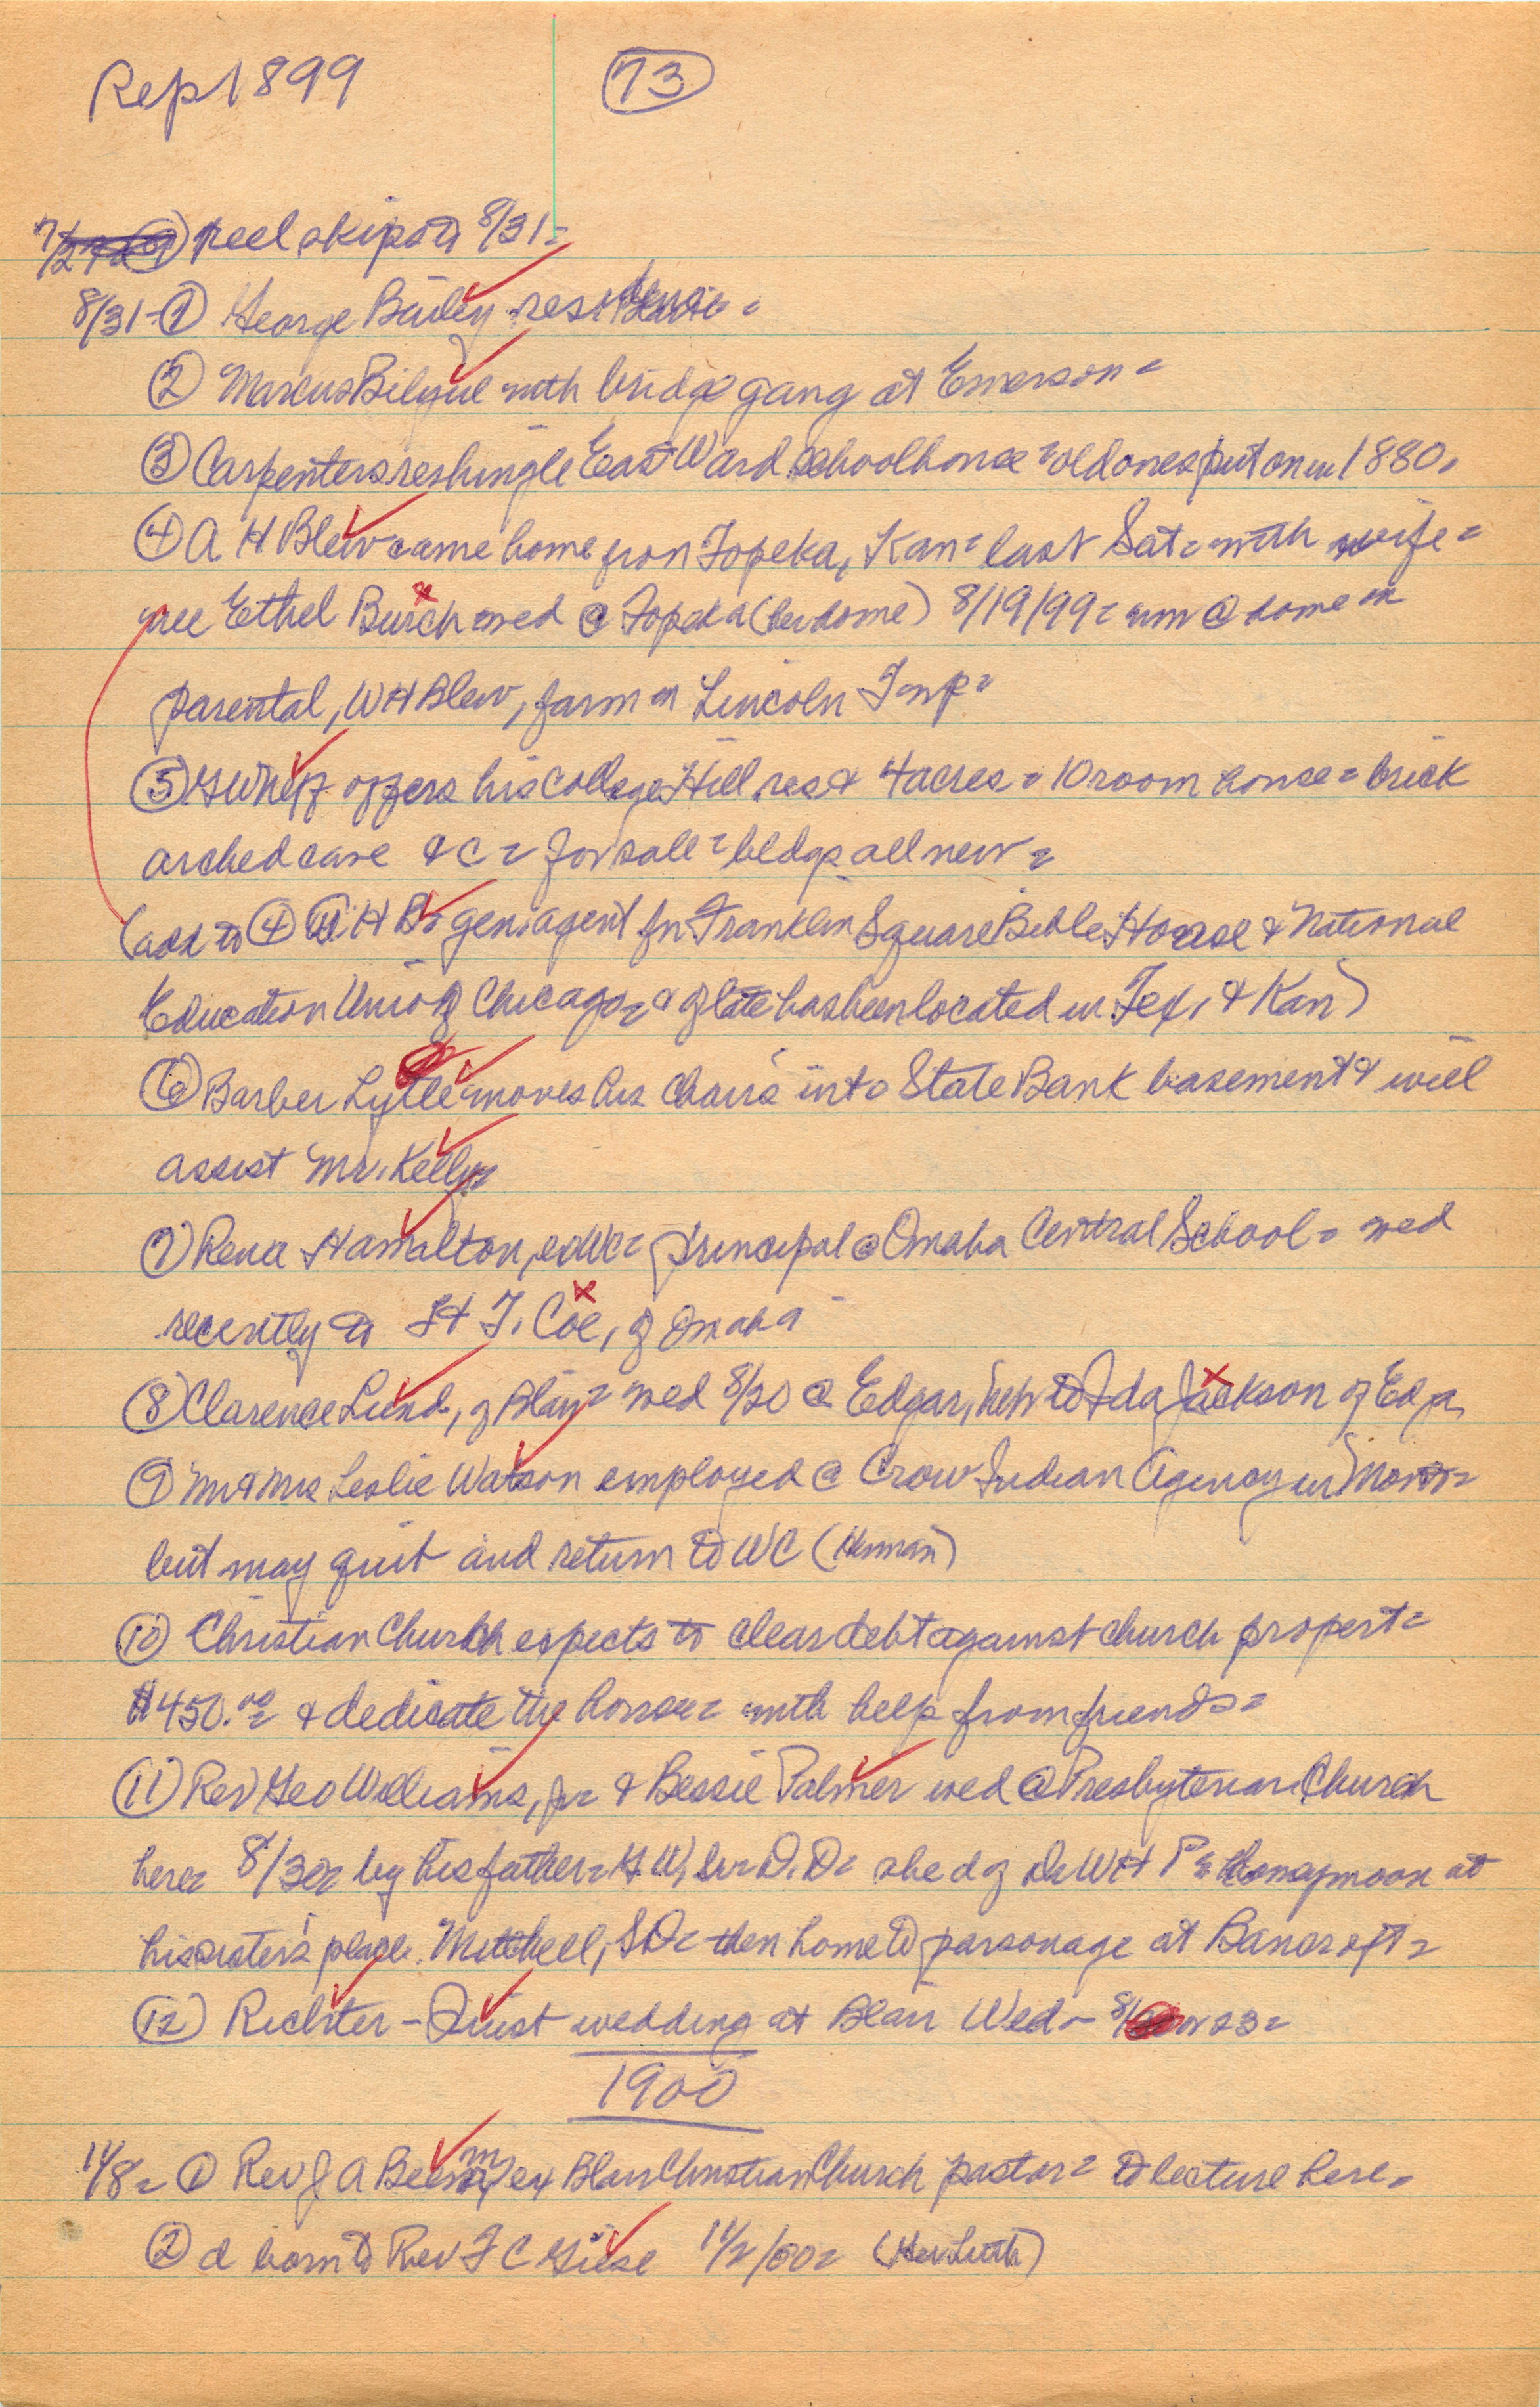 Rep 1899 73
7/27= reel skips to 8/31=
8/31-① George Bailey residence =
② Marcus Bilyue with bridge gang at Emerson =
③ Carpenters reshingle East Ward schoolhouse = old ones put on in 1880.
④ A H Blew came home from Topeka, Kan = last Sat = with wife =
nee Ethel Burch wed @ Topeka (her home) 8/19/99 = now @ home on
parental, W H Blew, farm in Lincoln Twp =
⑤ offers his College Hill res & 4 acres = 10 room house = brick
arched cave & c = for sale = bldgs all new =
(add to ④ A H B = gen. agent for Franklin Square Bible House & National
Education Union of Chicago = & of late has been located in Tex, & Kan)
⑥ Barber Lytle moves his chairs into State Bank basement & will
assist Mr. Kelly =
⑦ Rena Hamilton, exWC = principal @ Omaha Central School = wed
recently to H T. Coe, of Omaha
⑧ Clarence Lund, of Blair = wed 8/20 @ Edgar, Neb to Ida Jackson of Edgar
⑨ Mr & Mrs Leslie Watson employed @ Crow Indian Agency in Mont =
but may quit and return to WC (Herman)
⑩ Christian Church expects to clear debt against church propert =
$450.00 = & dedicate the house = with help from friends =
⑪ Rev Geo Williams, jr = & Bessie Palmer wed @ Presbyterian Church
here = 8/30 = by his father = G W, D.D = she d of Dr W H P = honeymoon at
his sister's place. Mitchell, SD = then home to parsonage at Bancroft =
⑫ Richter - Quist wedding at Blair Wed - 8/ or 23 =
1900
11/8 = ① Rev J A Beem, ex Blair Christian Church pastor = to lecture here.
② d born to Rev F C Giese 11/2/00 = (Her Luth)